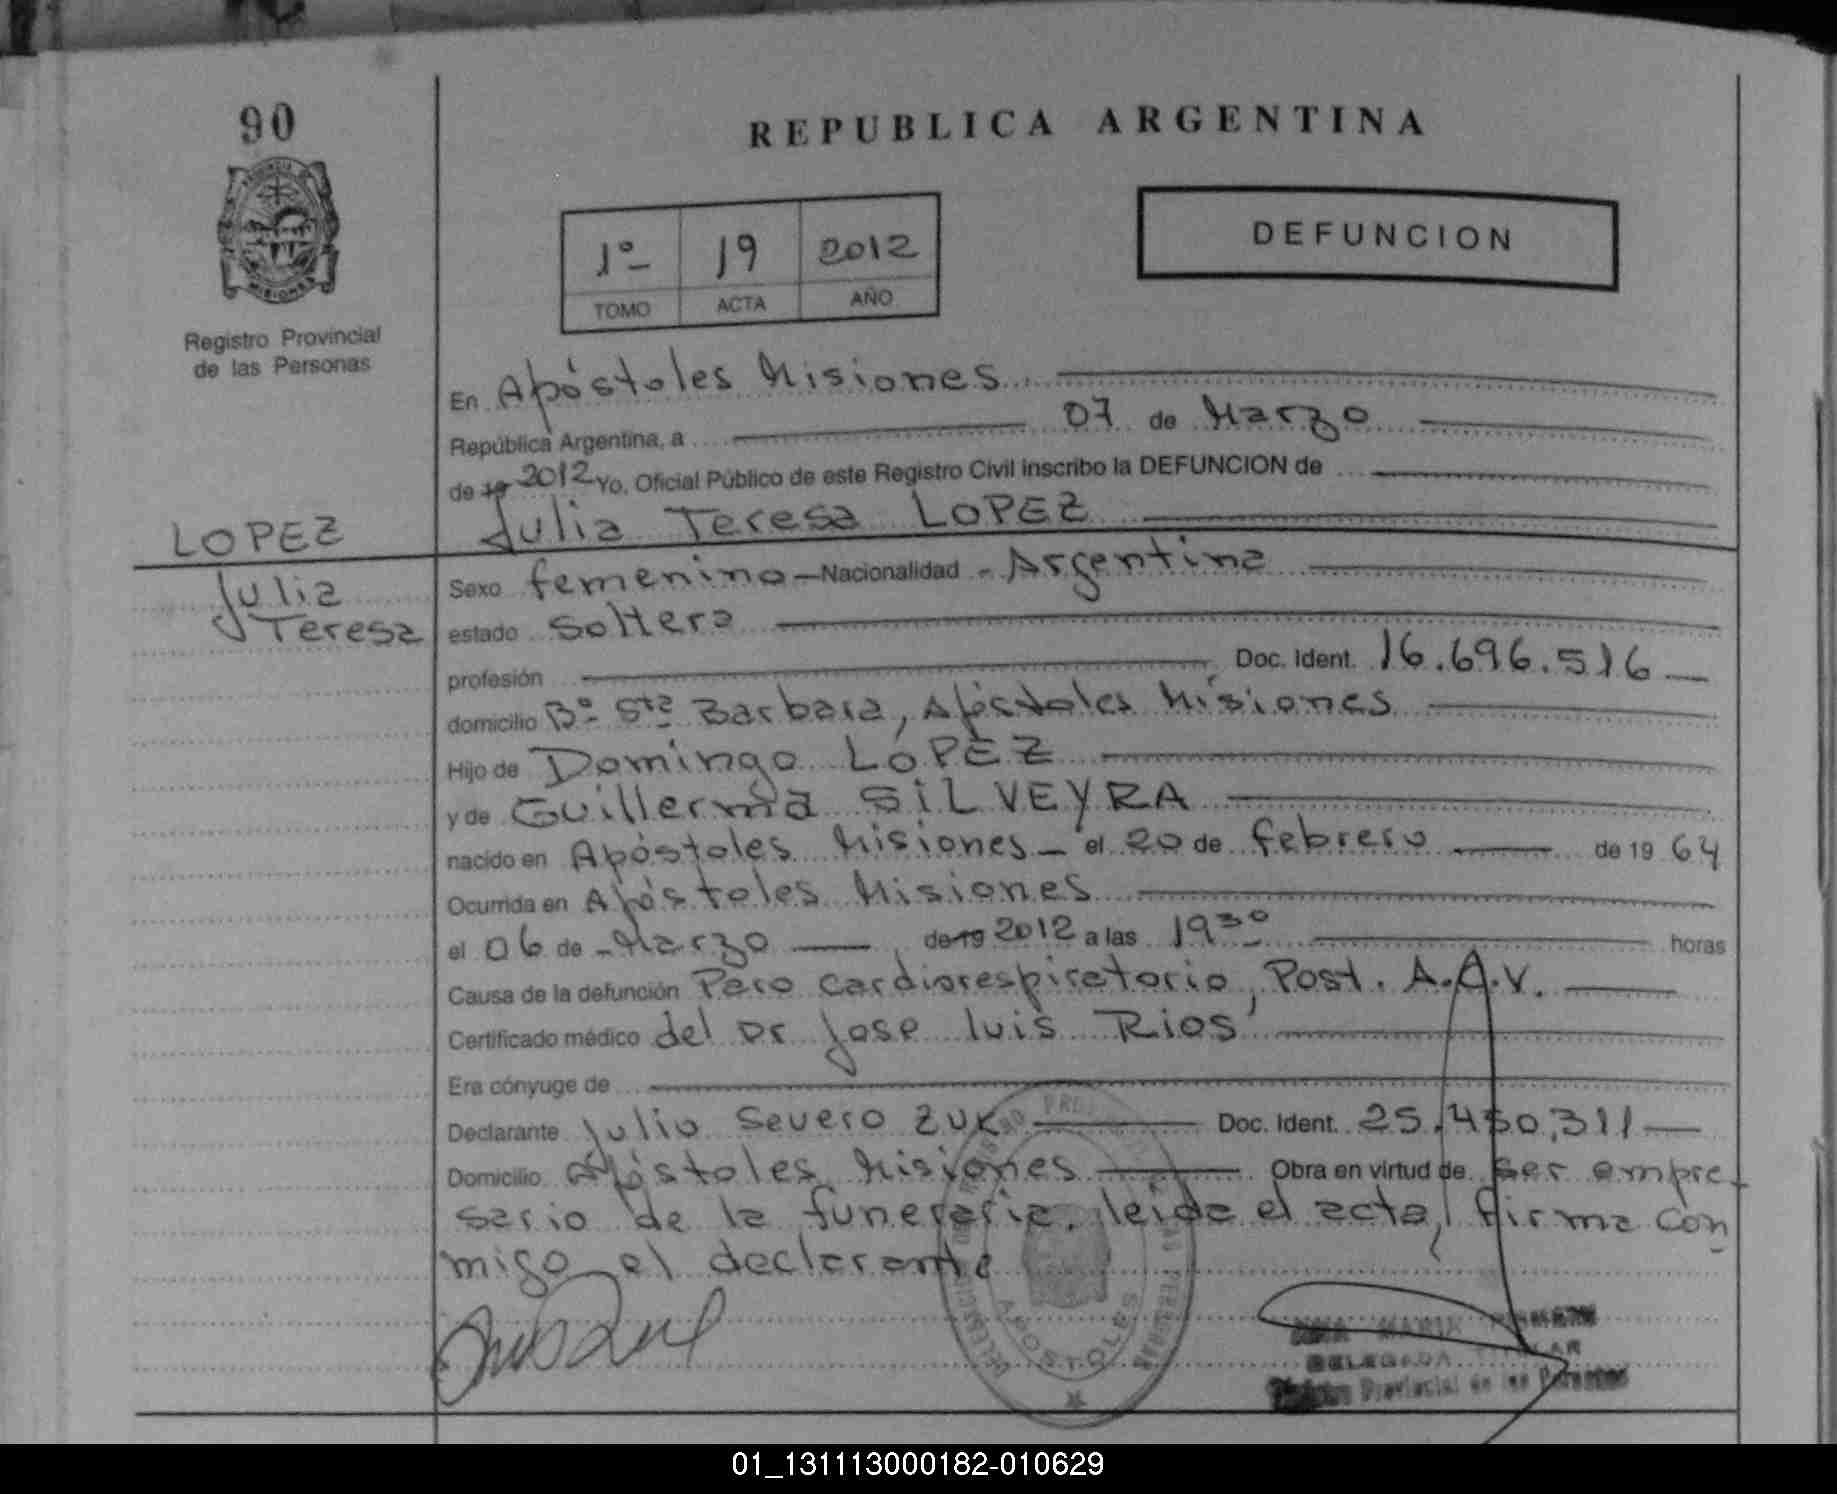 90
REPUBLICA ARGENTINA
PROVINCIA DE MISIONES
1º 19 2012
TOMO ACTA AÑO
DEFUNCION
Registro Provincial
de las Personas
En Apóstoles Misiones
República Argentina, a 07 de Marzo
de 19 2012 Yo, Oficial Público de este Registro Civil inscribo la DEFUNCION de
LOPEZ
Julia Teresa LOPEZ
Julia
Teresa
Sexo femenino Nacionalidad Argentina
estado Soltera
profesión Doc. Ident. 16.696.516
domicilio Bº Sta Barbara, Apóstoles Misiones
Hijo de Domingo LOPEZ
y de Guillerma SILVEYRA
nacido en Apóstoles Misiones el 20 de febrero de 19 64
Ocurrida en Apóstoles Misiones
el 06 de Marzo de 19 2012 a las 19 30 horas
Causa de la defunción Paro cardiorespiratorio, Post. A.C.V.
Certificado médico del Dr Jose luis Rios
Era cónyuge de
Declarante Julio Severo ZUK Doc. Ident. 25.450.311
Domicilio Apóstoles Misiones Obra en virtud de ser empre-
sario de la funeraria. leida el acta, firma con
migo el declarante
APOSTOLES
DELEGADA
Registro Provincial de las Personas
01_131113000182-010629